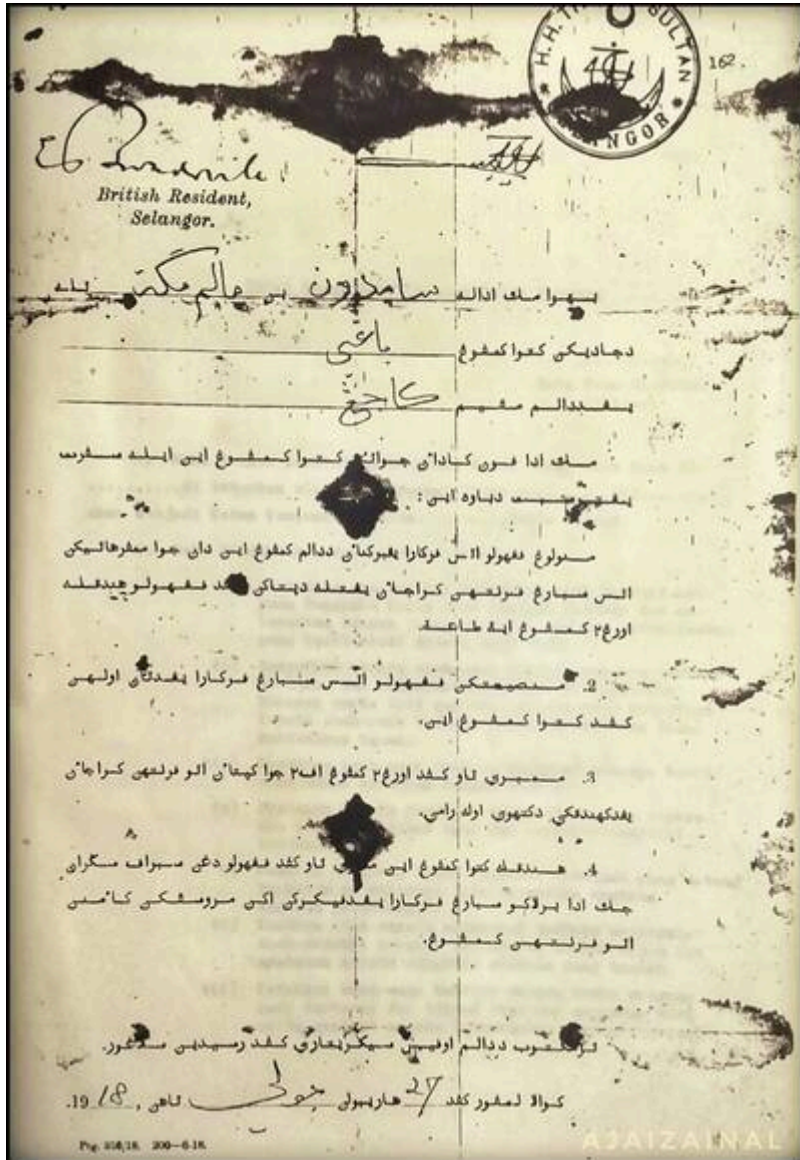 H.H. THE SULTAN
162.
British Resident,
Selangor.
بهوا مك اداله سامدون بن حاج
دجاديكن كتوا كمڤوڠ باڠي
يڠددالم مقيم كاجڠ
مك ادا ڤون كادأن جواتن كتوا كمڤوڠ اين اياله سڤرت
يڠترسبت دباوه اين :
منولوڠ ڤڠهولو اتس ڤركارا يڠبركنأن ددالم كمڤوڠ اين دان جوا
اتس سبارڠ ڤرنتهن كراجأن يڠتله ڤڠهولو هيندقله
اورڠ٢ كمڤوڠ ايت طاعة.
2. ڤڠهولو اتس سبارڠ ڤركارا اولهن
كڤد كتوا كمڤوڠ اين.
3. ممبري تاو كڤد اورڠ٢ كمڤوڠ اف٢ جوا كپتأن اتو ڤرنتهن كراجأن
يڠدكهندقكن دكتهوي اوله رامي.
4. هيندقله كتوا كمڤوڠ اين ممبري تاو كڤد ڤڠهولو دڠن سبراف سڬراڽ
جك ادا برلاكو سبارڠ ڤركارا يڠدفيكركن اكن مروسقكن كأمنن
اتو ڤرنتهن كمڤوڠ.
ترمكتوب ددالم اوفيس سيكريتاري كڤد رسيدين سلاڠور.
كوالا لمڤور كڤد 27 هاريبولن جولي تاهن 1918.
Ptg. 316/18. 200—6-18.
AJAIZAINAL